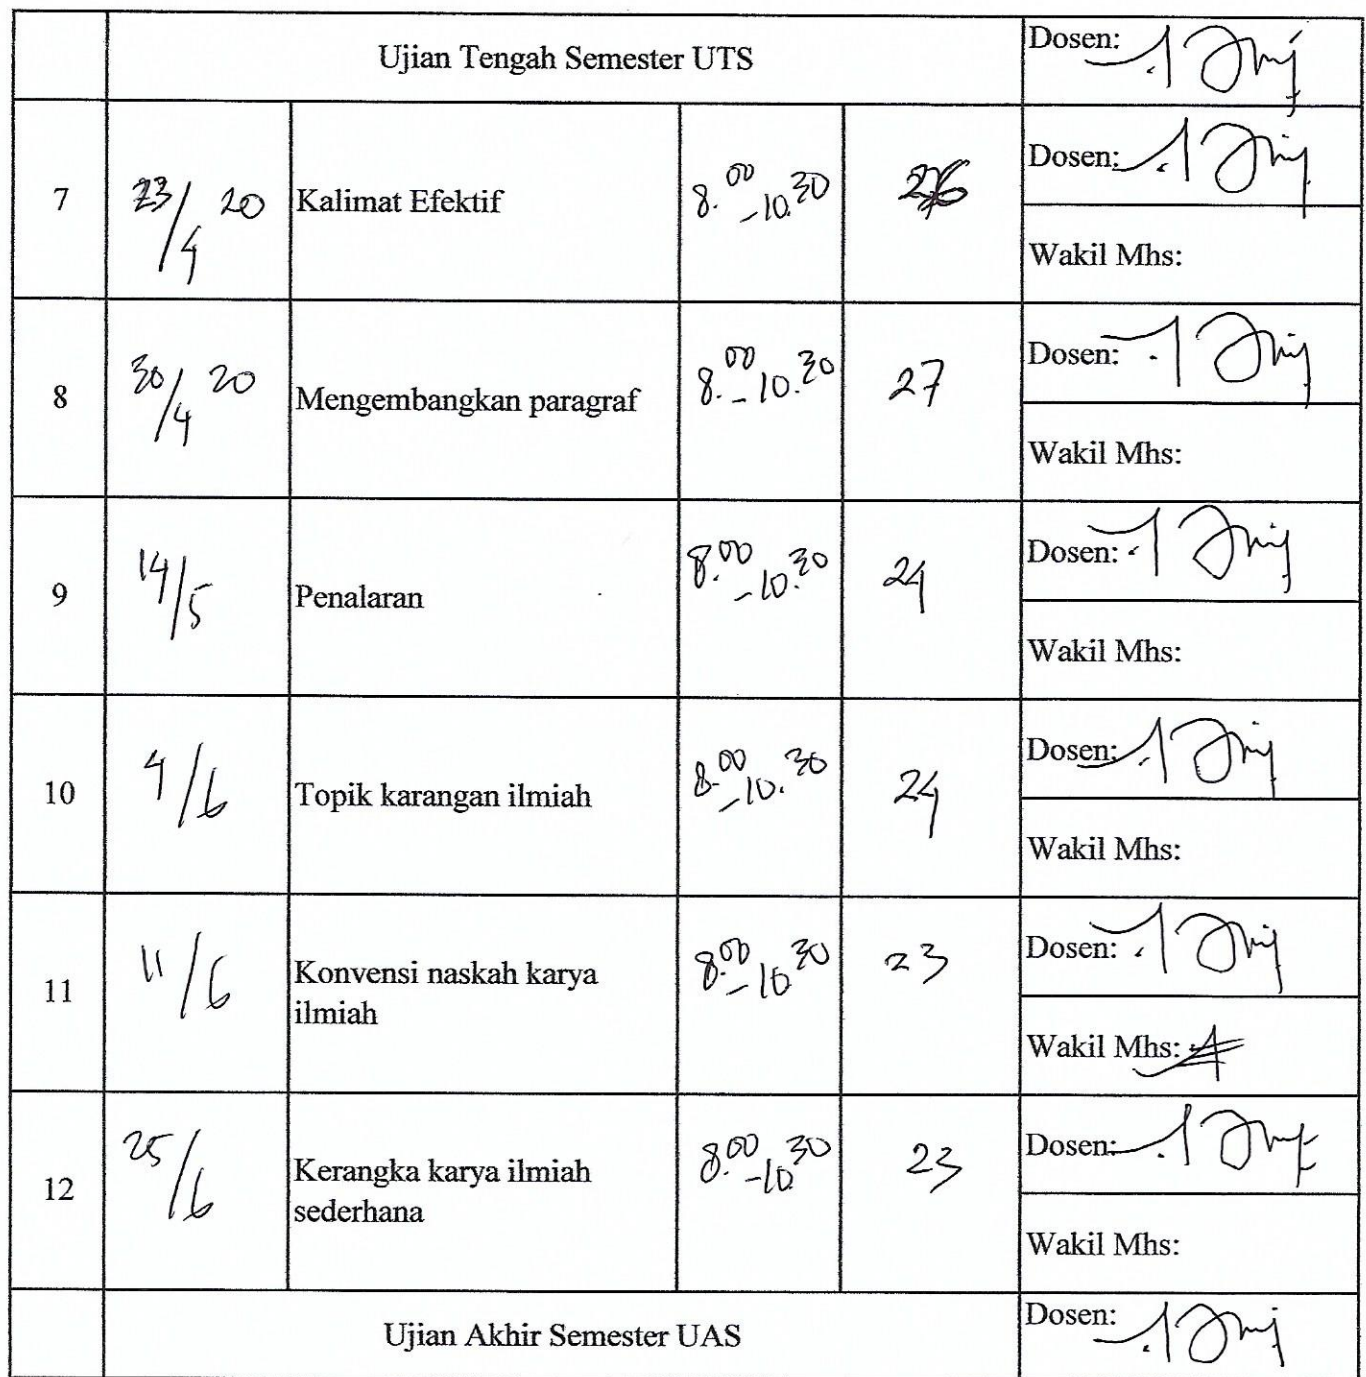 Ujian Tengah Semester UTS
Dosen:
7
23/4 20
Kalimat Efektif
8.00-10.30
26
Dosen:
Wakil Mhs:
8
30/4 20
Mengembangkan paragraf
8.00-10.30
27
Dosen:
Wakil Mhs:
9
14/5
Penalaran
8.00-10.30
24
Dosen:
Wakil Mhs:
10
4/6
Topik karangan ilmiah
8.00-10.30
24
Dosen:
Wakil Mhs:
11
11/6
Konvensi naskah karya
ilmiah
8.00-10.30
23
Dosen:
Wakil Mhs:
12
25/6
Kerangka karya ilmiah
sederhana
8.00-10.30
23
Dosen:
Wakil Mhs:
Ujian Akhir Semester UAS
Dosen: